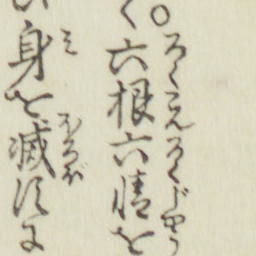 ろくこんろくじやう
く○六根六情を
み ほろぼ
身を滅す